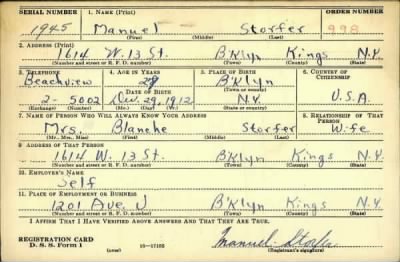 SERIAL NUMBER 1. NAME (Print) ORDER NUMBER
1945 Manuel Storfer 998
(First) (Middle) (Last)
2. ADDRESS (Print)
1614 W. 13 St. B'klyn Kings N.Y.
(Number and street or R. F. D. number) (Town) (County) (State)
3. TELEPHONE 4. AGE IN YEARS 5. PLACE OF BIRTH 6. COUNTRY OF CITIZENSHIP
Beachview 28 B'klyn
DATE OF BIRTH (Town or county)
2-5002 Dec. 29, 1912 N.Y. U.S.A.
(Exchange) (Number) (Mo.) (Day) (Yr.) (State or country)
7. NAME OF PERSON WHO WILL ALWAYS KNOW YOUR ADDRESS 8. RELATIONSHIP OF THAT PERSON
Mrs. Blanche Storfer Wife
(Mr., Mrs., Miss) (First) (Middle) (Last)
9. ADDRESS OF THAT PERSON
1614 W. 13 St. B'klyn Kings N.Y.
(Number and street or R. F. D. number) (Town) (County) (State)
10. EMPLOYER'S NAME
Self
11. PLACE OF EMPLOYMENT OR BUSINESS
1201 Ave. J B'klyn Kings N.Y.
(Number and street or R. F. D. number) (Town) (County) (State)
I AFFIRM THAT I HAVE VERIFIED ABOVE ANSWERS AND THAT THEY ARE TRUE.
REGISTRATION CARD
D. S. S. Form 1 (over) 16—17105 Manuel Storfer
(Registrant's signature)